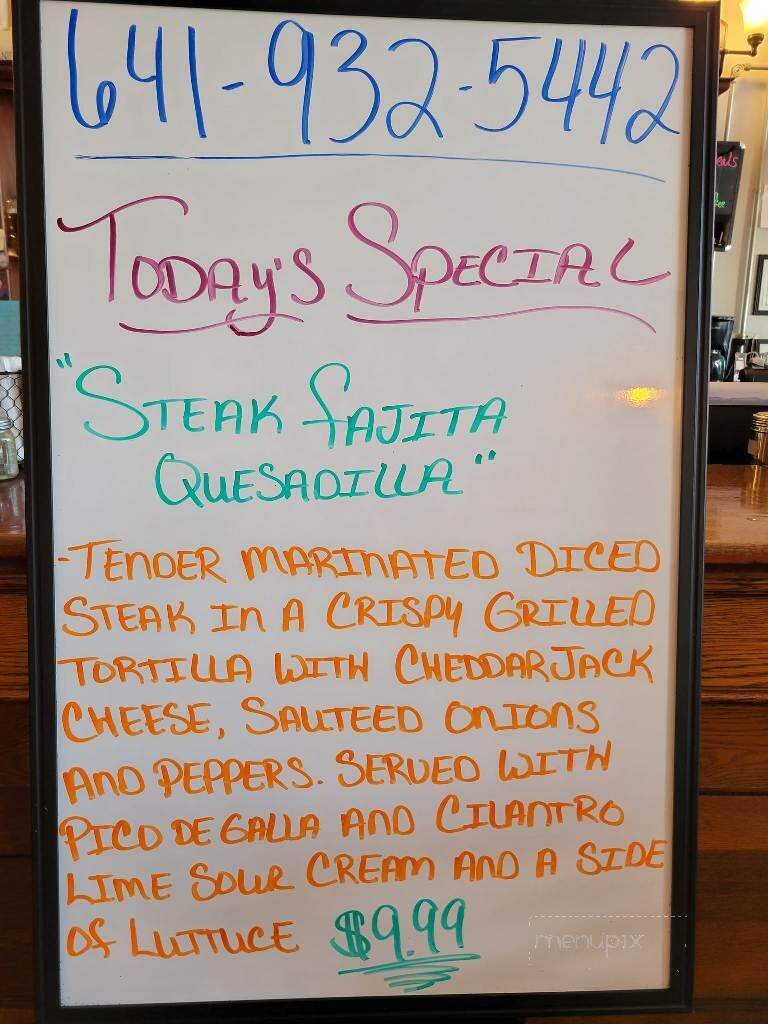 641-932-5442
TODAY'S SPECIAL
"STEAK FAJITA
QUESADILLA"
-TENDER MARINATED DICED
STEAK IN A CRISPY GRILLED
TORTILLA WITH CHEDDAR JACK
CHEESE, SAUTEED ONIONS
AND PEPPERS. SERVED WITH
PICO DE GALLA AND CILANTRO
LIME SOUR CREAM AND A SIDE
OF LUTTUCE $9.99
menupix